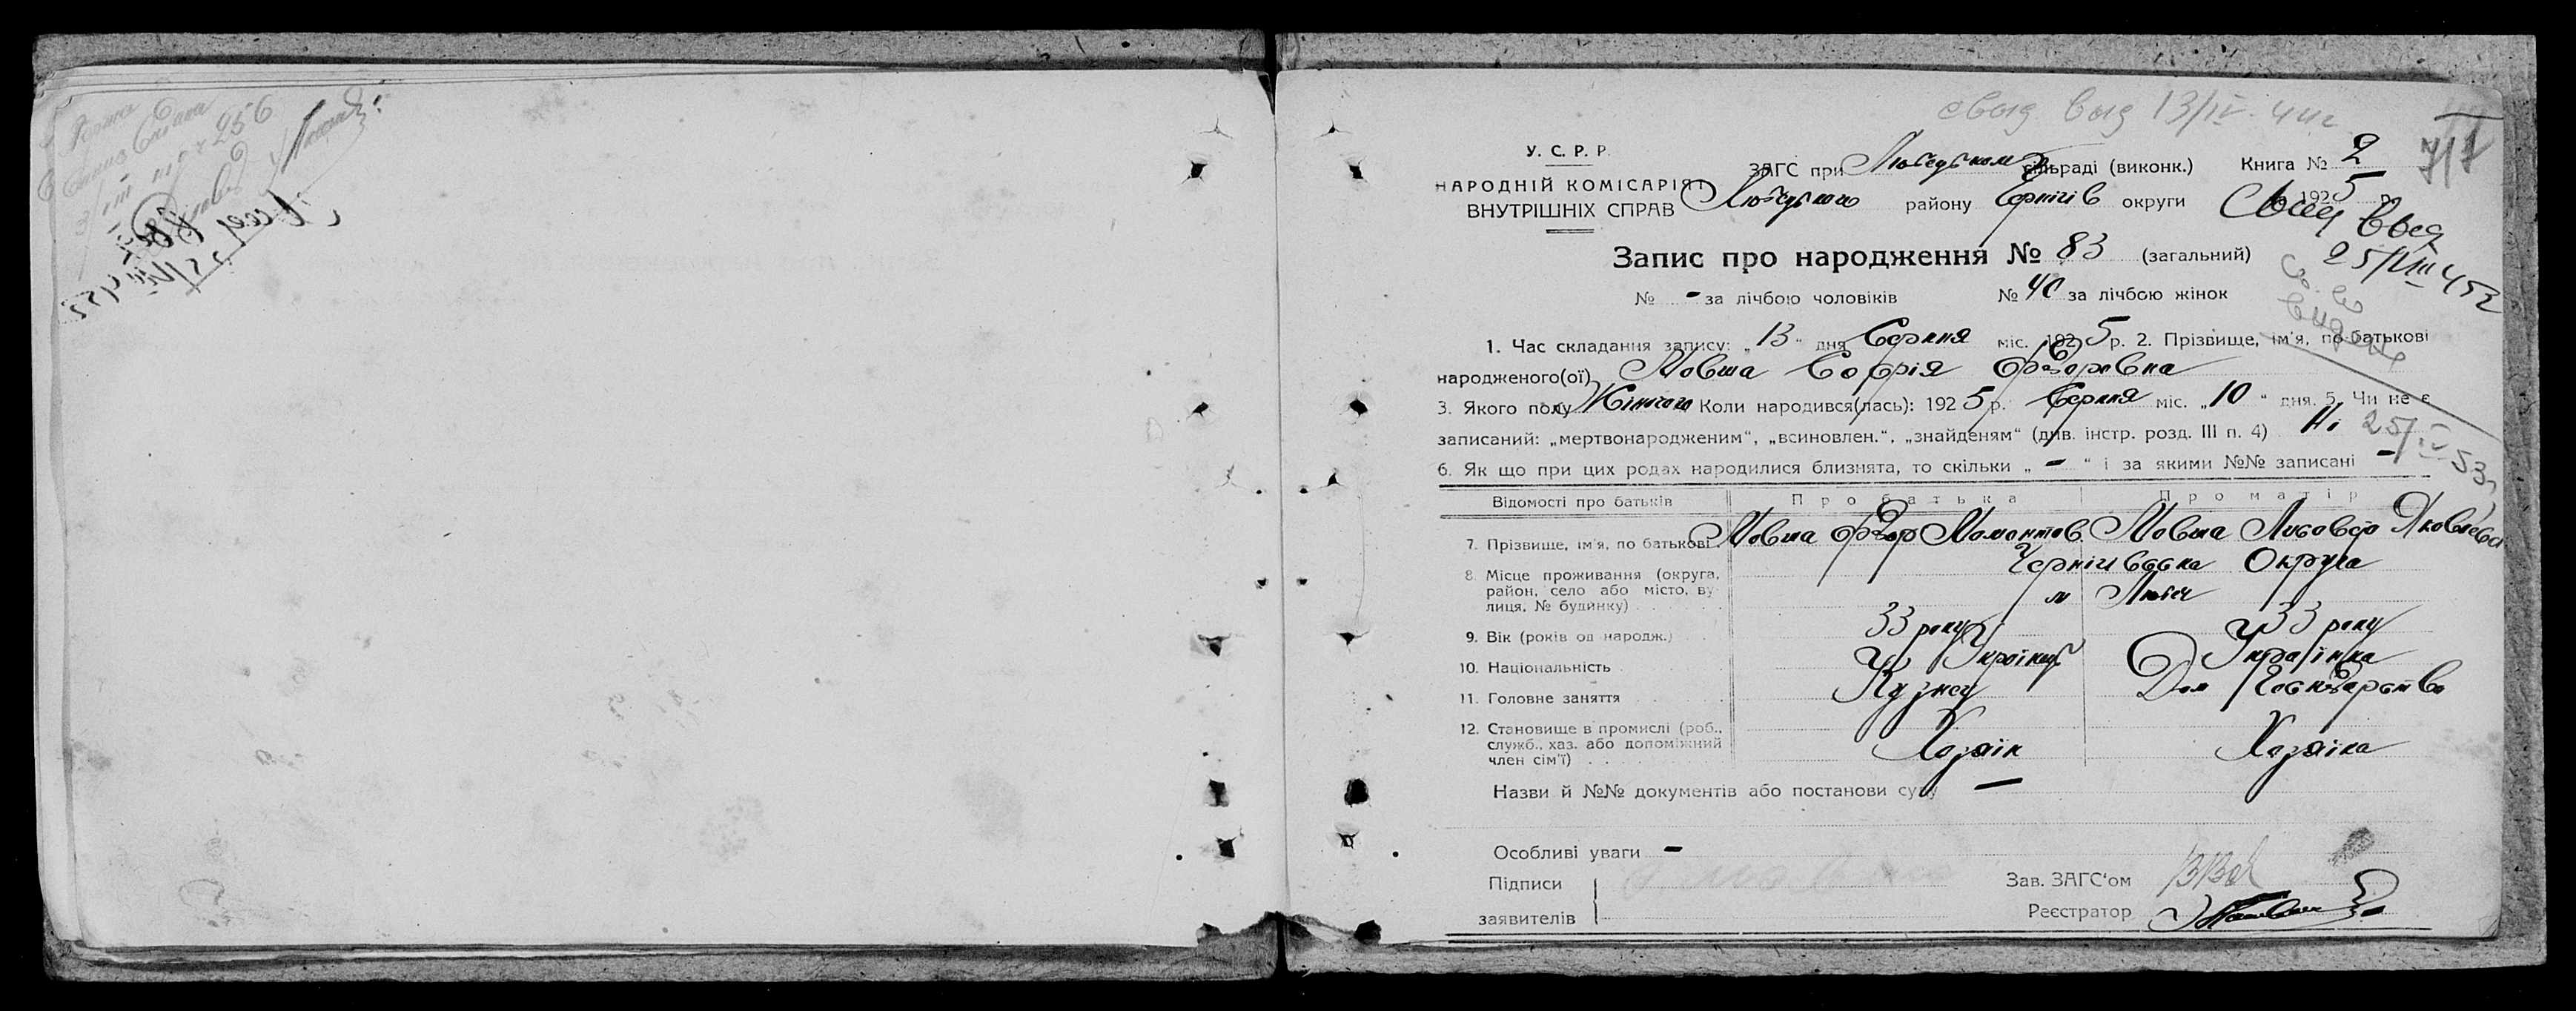 свид выд 13/IV
У. С. Р. Р.
НАРОДНІЙ КОМІСАРІЯТ
ВНУТРІШНІХ СПРАВ
ЗАГС при сільраді (виконк.) Книга № 2
району Чернігів округи 1925 р.
Запис про народження № 83 (загальний)
25/VIII 45
№ - за лічбою чоловіків № 40 за лічбою жінок
1. Час складання запису: „13“ дня Серпня міс. 1925 р. 2. Прізвище, ім'я, по батькові
народженого(ої) Мовша Софія Федоровна
3. Якого полу Жіночого Коли народився(лась): 1925 р. Серпня міс. „10“ дня. 5. Чи не є
записаний: „мертвонародженим“, „всиновлен.“, „знайденям“ (див. інстр. розд. III п. 4) Ні
25/IV 53
6. Як що при цих родах народилися близнята, то скільки „-“ і за якими №№ записані -
Відомості про батьків Про батька Про матір
7. Прізвище, ім'я, по батькові Мовша Федор Мамонтов. Мовша Любовь Яковлевна
8. Місце проживання (округа, Чернігівська Округа
район, село або місто, ву-
лиця, № будинку) м Любеч
9. Вік (років од народж.) 33 року 33 року
10. Національність Українець Українка
11. Головне заняття Кузнец Дом Господарство
12. Становище в промислі (роб.,
служб., хаз. або допоміжний Хозяїн Хозяїка
член сім'ї)
Назви й №№ документів або постанови суду —
Особливі уваги -
Підписи
заявителів
Зав. ЗАГС'ом
Реєстратор